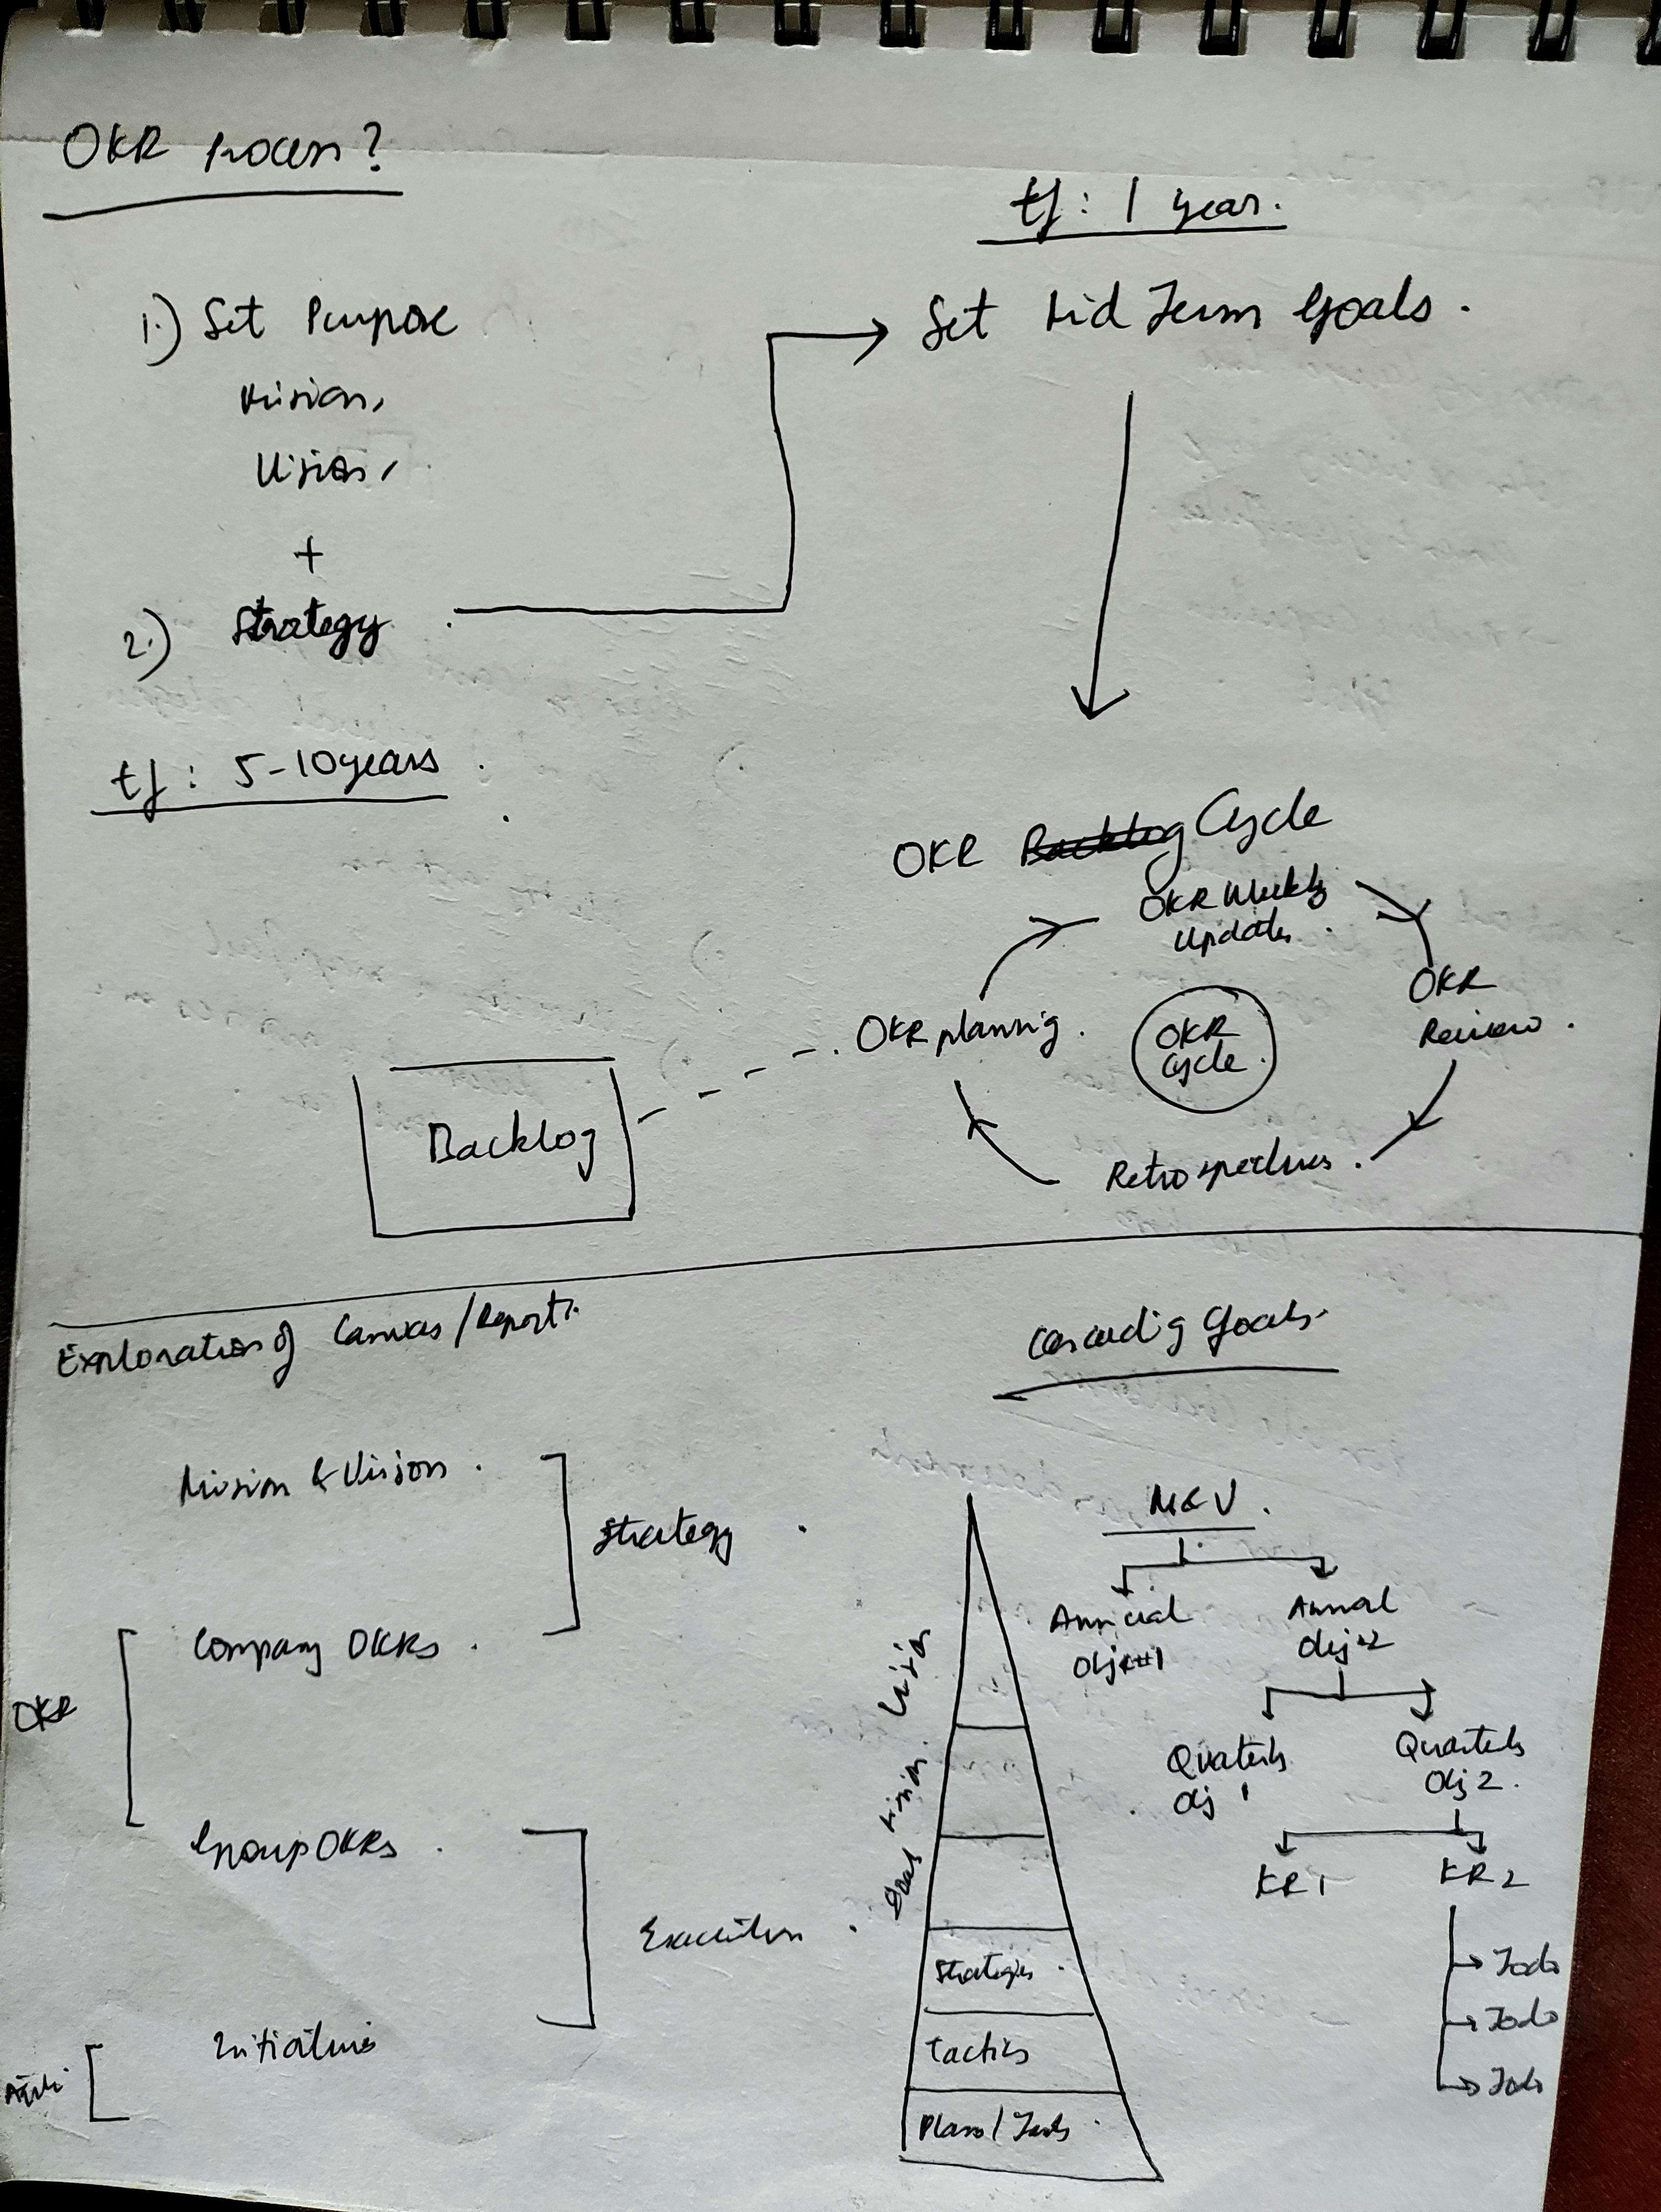 OKR Process?
tf: 1 year.
1.) Set Purpose
Mission,
Vision,
+
2.) Strategy
tf: 5-10 years
Set Mid Term Goals.
OKR Backlog Cycle
OKR Weekly
Updates.
OKR
Review.
OKR planning.
OKR
Cycle.
Retrospectives.
Backlog
Exploration of Canvas/Reports.
Mission & Vision.
Strategy
Company OKRs.
OKR
Group OKRs.
Execution
Initiatives
Cascading Goals.
M & V.
Annual
Obj #1
Annual
Obj #2
Quaterly
Obj 1
Quarterly
Obj 2.
KR 1
KR 2
Todo
Todo
Todo
Vision
Mission
Goals
Strategies
Tactics
Plans/Tasks